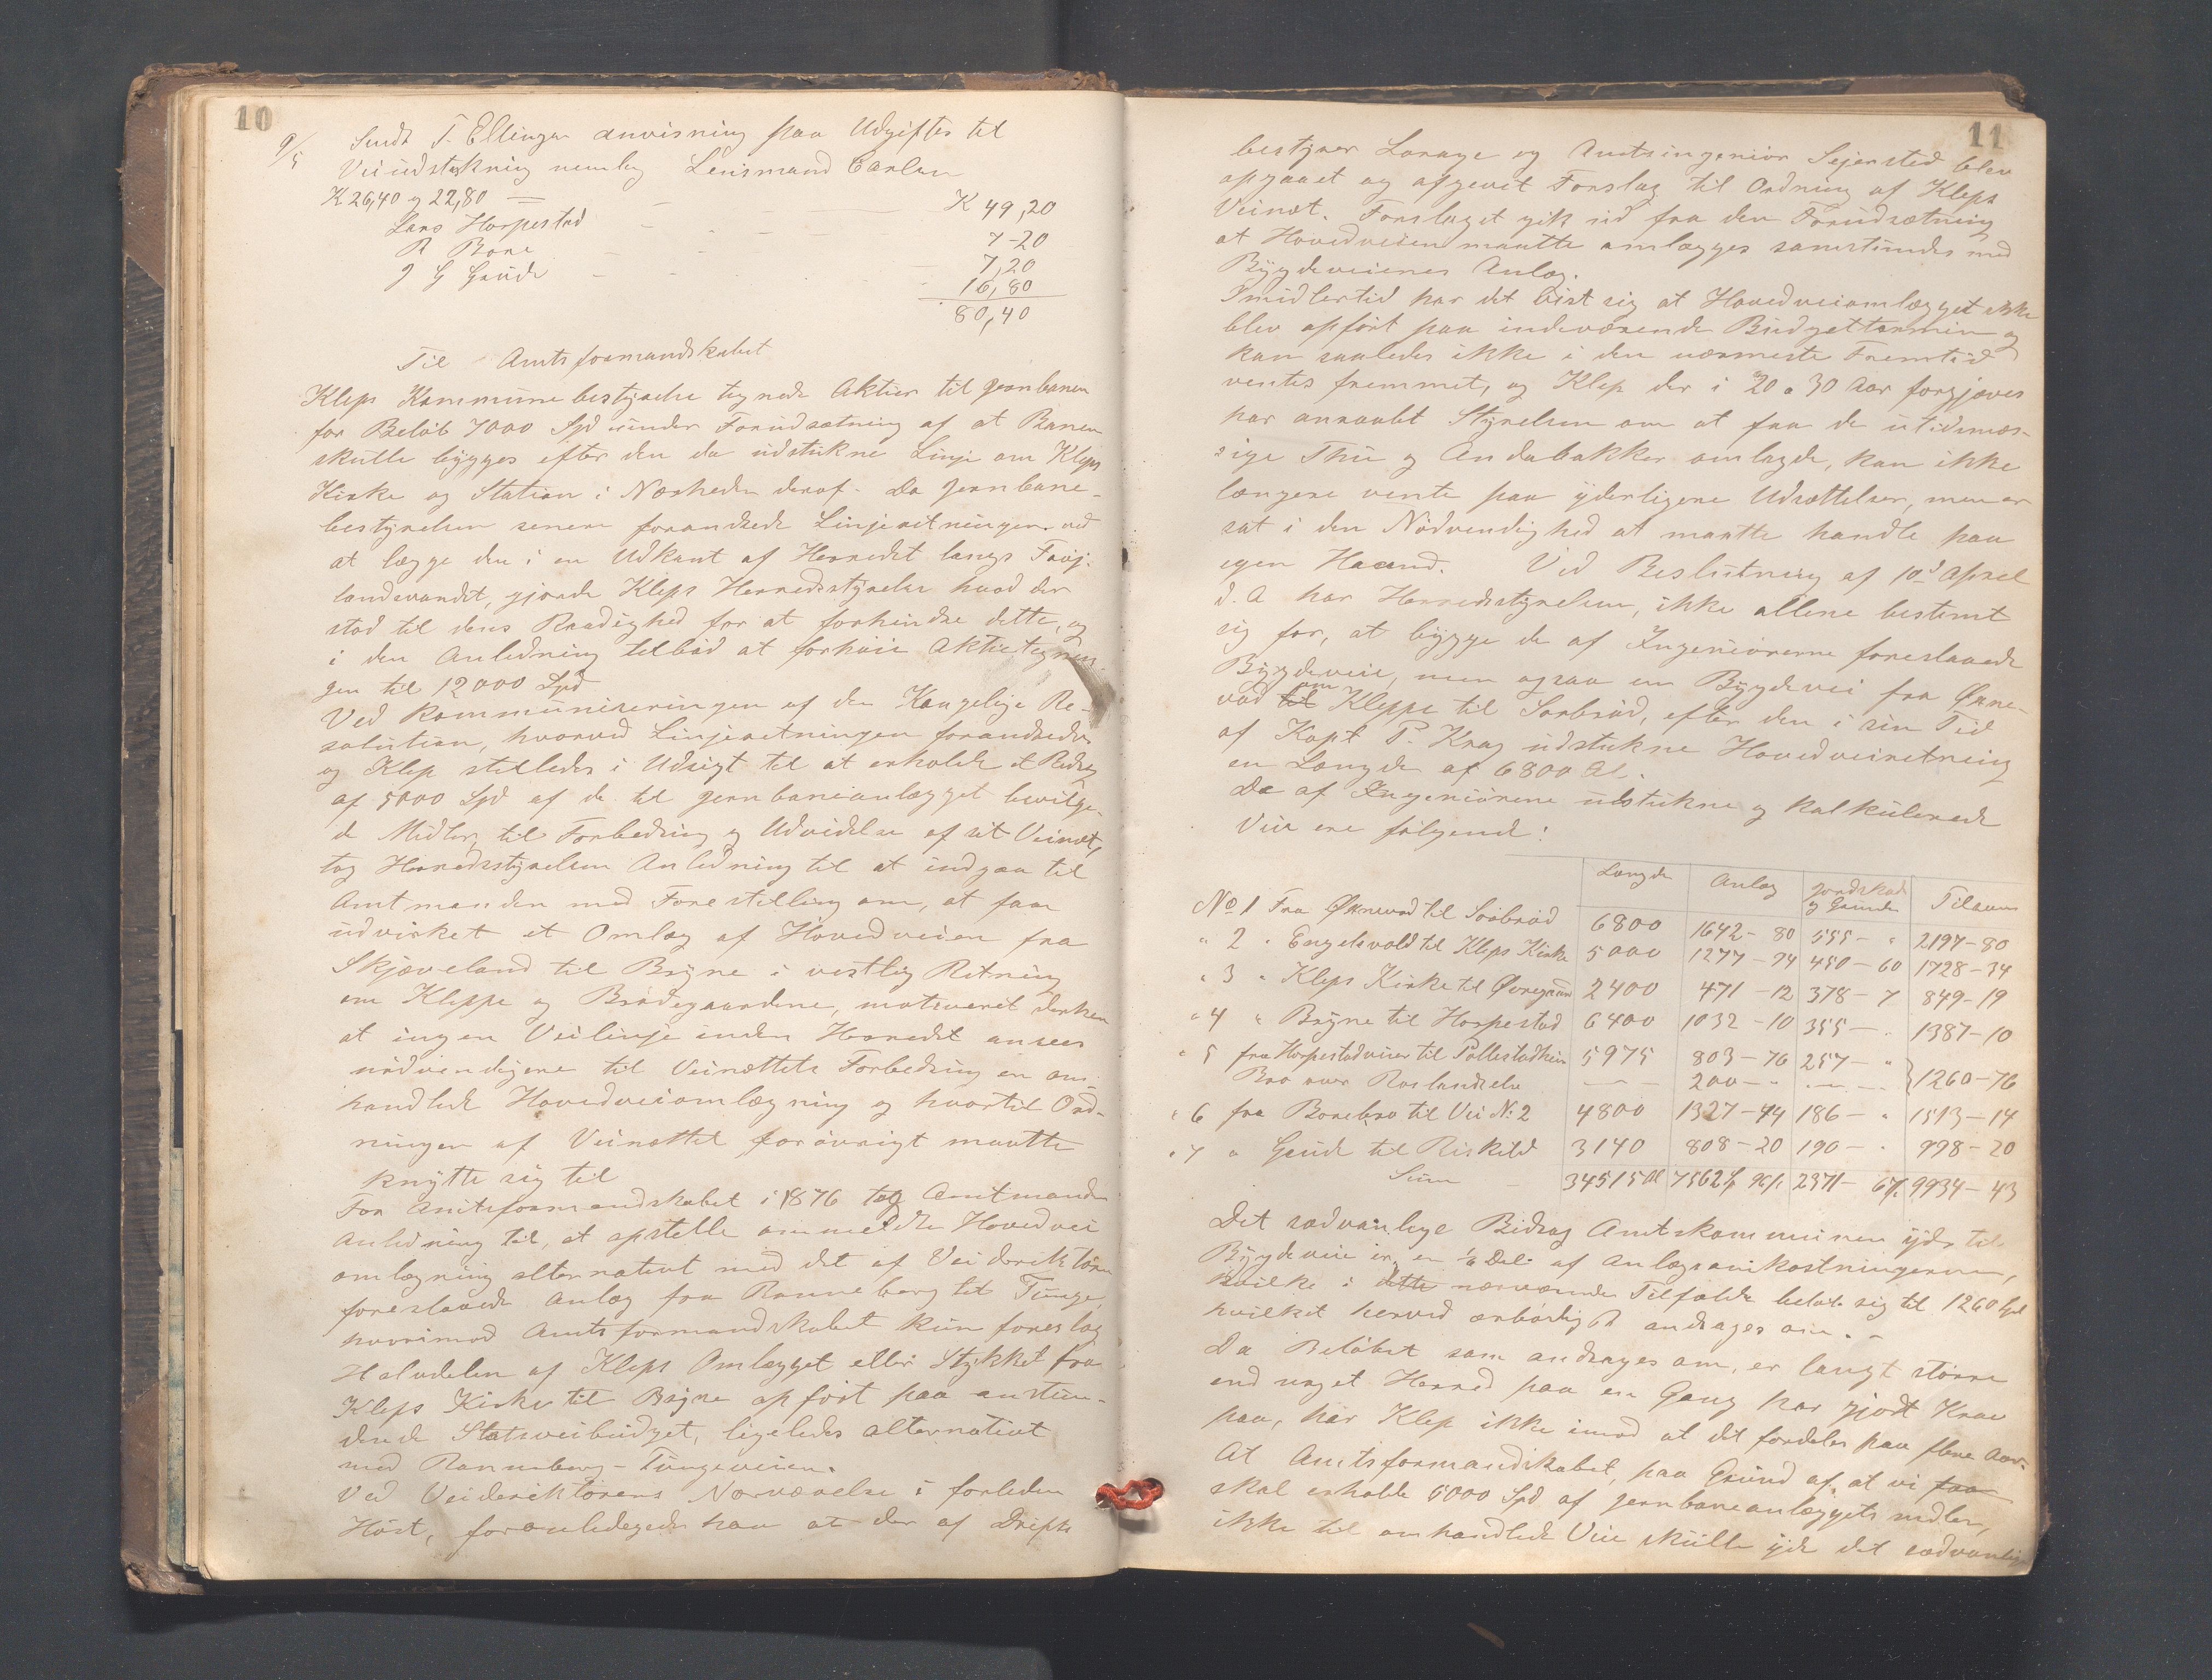 10
9/5 Sendt T. Ellingsen anvisning paa Udgifter til
Veiudstikning nemlig Lensmand Carlsen
K 26,40 og 22,80 = — — K 49,20
Lars Horpestad - - - 7-20
R Bore - - 7,20
J G Grude - - 16,80
80,40
Til Amtsformandskabet
Kleps Kommunebestyrelse tegnede Aktier til Jernbanen
for Beløb 7000 Spd under Forudsætning af at Banen
skulle bygges efter den da udstukne Linje om Kleps
Kirke og Station i Nærheden deraf. Da Jernbane-
bestyrelsen senere forandrede Linjeretningen ved
at lægge den i en Udkant af Herredet langs Frøj-
landsvandet, gjorde Kleps Herredsstyrelse hvad der
stod til dens Raadighed for at forhindre dette, og
i den Anledning tilbød at forhøie Aktietegnin-
gen til 12000 Spd
Ved Kommuniseringen af den Kongelige Re-
solution, hvorved Linjeretningen forandredes
og Klep stilledes i Udsigt til at erholde et Bidrag
af 5000 Spd af de til Jernbaneanlægget bevilge-
de Midler, til Forbedring og Udvidelse af sit Veinæt,
tog Herredsstyrelsen Anledning til at indgaa til
Amtmanden med Forestilling om, at faa
udvirket et Omlæg af Hovedveien fra
Skjæveland til Bryne i vestlig Retning
om Kleppe og Brødegaardene, motiveret derhen
at ingen Veilinje inden Herredet ansees
nødvendigere til Veinættets Forbedring en om-
handlede Hovedveiomlægning og hvortil Ord-
ningen af Veinættet forøvrigt maatte
knytte sig til
For Amtsformandskabet i 1876 tog Amtmanden
Anledning til, at opstille ommeldte Hovedvei
omlægning alternativt med det af Veidirektøren
foreslaaede Anlæg fra Ranneberg til Tunge,
hvorimod Amtsformandskabet kun foreslog
Halvdelen af Kleps Omlægget eller Stykket fra
Kleps Kirke til Bryne opført paa anstun-
dende Statsveibudget, ligeledes alternativt
med Ranneberg-Tungeveien.
Ved Veidirektørens Nærværelse i forleden
Høst, foranledigede han at der af Drifts
11
bestyrer Lorange og Amtsingeniør Sejersted blev
opgaaet og afgevet Forslag til Ordning af Kleps
Veinæt. Forslaget gik ud fra den Forudsætning
at Hovedveien maatte omlægges samstundes med
Bygdeveienes Anlæg.
Imidlertid har det vist sig at Hovedveiomlægget ikke
blev opført paa indeværende Budgettermin og
kan saaledes ikke i den nærmeste Fremtid
ventes fremmet, og Klep der i 20 a 30 Aar forgjæves
har anraabt Styrelsen om at faa de utidsmæs-
sige Thu og Andabakker omlagde, kan ikke
længere vente paa yderligere Udsættelser, men er
sat i den Nødvendighed at maatte handle paa
egen Haand. Ved Beslutning af 10d April
d. A har Herredsstyrelsen, ikke allene bestemt
sig for, at bygge de af Ingeniørerne foreslaaede
Bygdeveie, men ogsaa en Bygdevei fra Øxne-
vad til om Kleppe til Sørbrød, efter den i sin Tid
af Kapt P. Krag udstukne Hovedveiretning
en Længde af 6800 Al.
De af Ingeniørene udstukne og kalkulerede
Veie ere følgende:
Længde Anlæg Jordskade og Grunde Tilsam
No 1 Fra Øxnevad til Sørbrød 6800 1642-80 555-" 2197-80
" 2 " Engelsvold til Kleps Kirke 5000 1277-94 450-60 1728-34
" 3 " Kleps Kirke til Øvregaard 2400 471-12 378-7 849-19
" 4 " Bryne til Horpestad 6400 1032-10 355-" 1387-10
" 5 fra Horpestadveien til Pollestadhein 5975 803-76 257-"
Bro over Roslandselv — 200-" — } 1260-76
" 6 fra Borebro til Vei No 2 4800 1327-44 186-" 1513-14
" 7 " Grude til Riskild 3140 808-20 190-" 998-20
Sum 34515 Al 7562 96 2371-67 9934-43
Det sædvanlige Bidrag Amtskommunen yder til
Bygdeveie er, en 1/8 Del af Anlægsomkostningerne,
hvilke i dette nærværende Tilfælde beløber sig til 1260 Spd
hvilket herved ærbødigst andrages om. -
Da Beløbet som andrages om, er langt større
end noget Herred paa en Gang har gjort Krav
paa, har Klep ikke imod at det fordeles paa flere Aar.
At Amtsformandskabet, paa Grund af at vi faa
skal erholde 5000 Spd af Jernbaneanlæggets midler,
ikke til omhandlede Veie skulle yde det sædvanlige